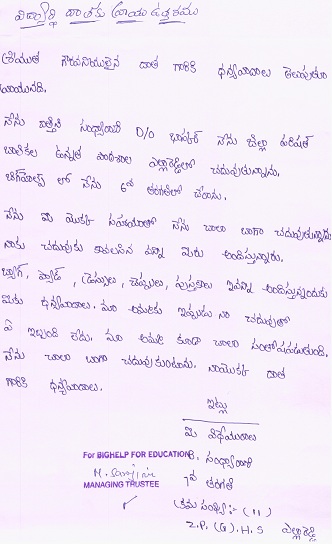 విద్యార్థి దాతకు వ్రాయు ఉత్తరము
శ్రీయుత గౌరవనీయులైన దాత గారికి ధన్యవాదాలు తెలుపుతూ
వ్రాయునది.
నేను బత్తిని సంధ్యారాణి D/O భాస్కర్ నేను జిల్లా పరిషత్
బాలికల ఉన్నత పాఠశాల ఎల్లారెడ్డిలో చదువుతున్నాను.
బిగ్‌హెల్ప్ లో నేను 6వ తరగతిలో చేరాను.
నేను మీ యొక్క సహాయంతో నేను చాలా బాగా చదువుతున్నాను
నాకు చదువుకు కావలసిన అన్నీ మీరు అందిస్తున్నారు.
బ్యాగ్, ప్యాడ్, డ్రెస్సులు, చెప్పులు, పుస్తకాలు ఇవన్నీ అందిస్తున్నందుకు
మీకు ధన్యవాదాలు. మా అమ్మకు ఇప్పుడు నా చదువుతో
ఏ ఇబ్బంది లేదు. మా అమ్మ కూడా చాలా సంతోషపడుతుంది.
నేను చాలా బాగా చదువుకుంటాను. నాయొక్క దాత
గారికి ధన్యవాదాలు.
ఇట్లు
మీ విధేయురాలు
B. సంధ్యారాణి
For BIGHELP FOR EDUCATION
MANAGING TRUSTEE
7వ తరగతి
క్రమ సంఖ్య :- (11)
Z.P. (G). H.S ఎల్లారెడ్డి